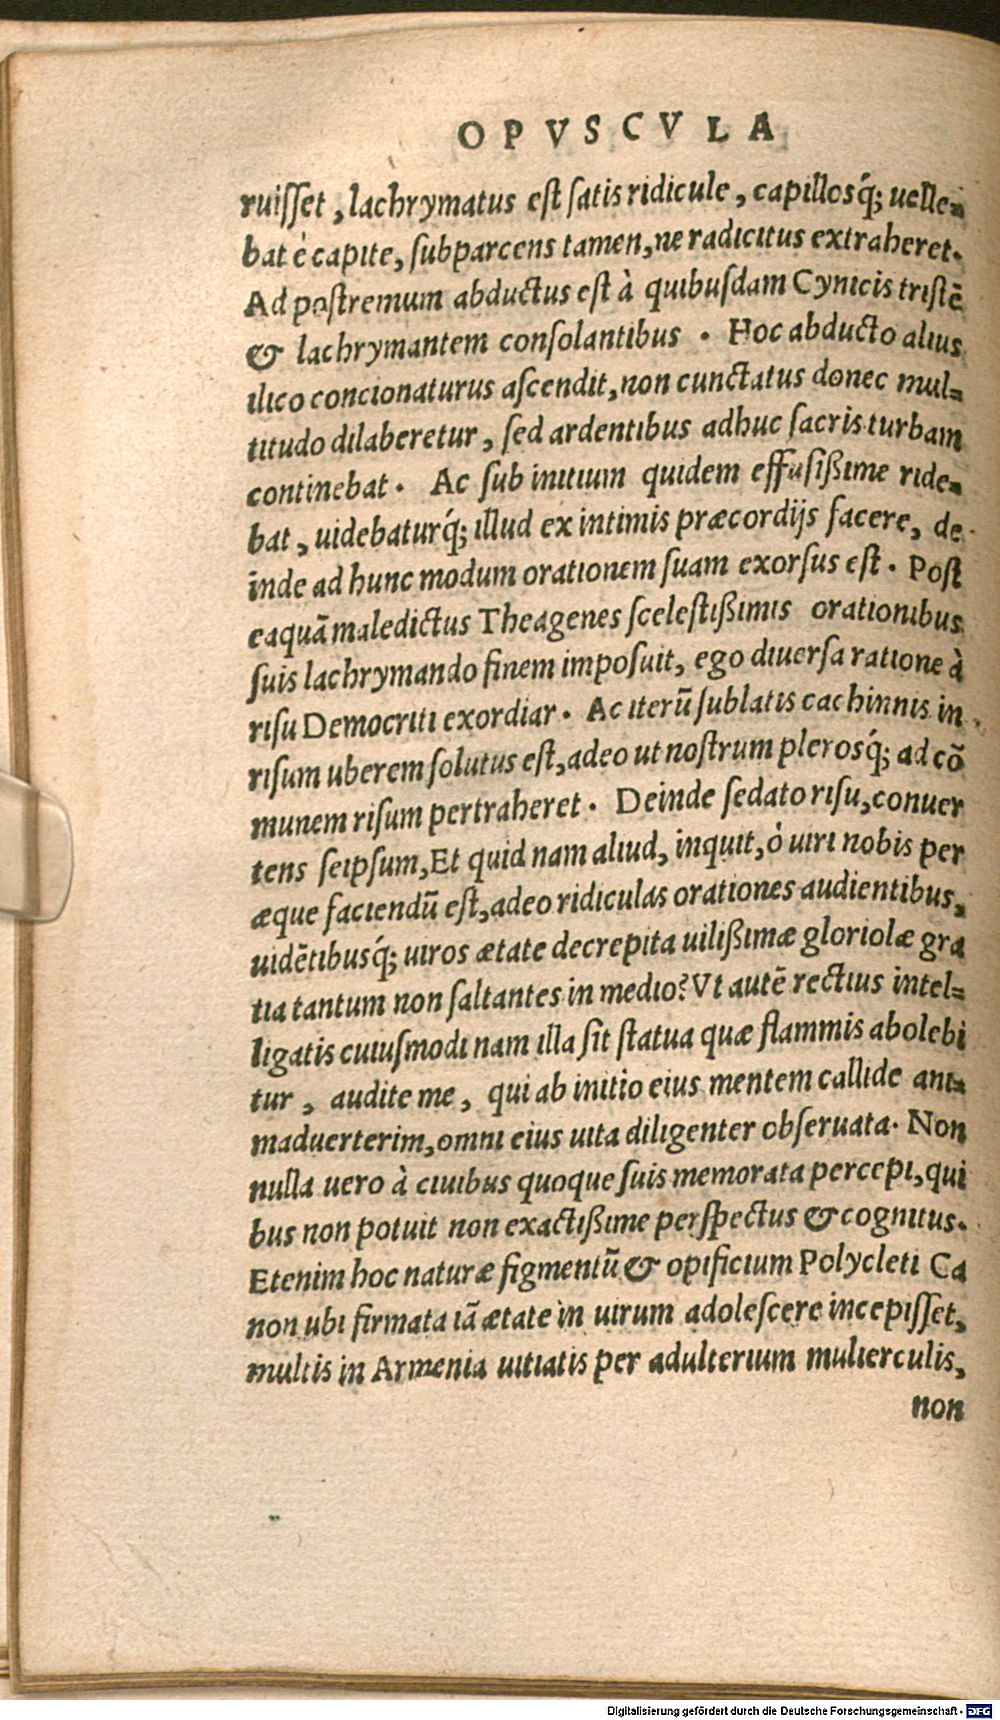 OPVSCVLA
ruisset, lachrymatus est satis ridicule, capillosq́; uelle=
bat è capite, subparcens tamen, ne radicitus extraheret.
Ad postremum abductus est à quibusdam Cynicis tristē
& lachrymantem consolantibus. Hoc abducto alius
ilico concionaturus ascendit, non cunctatus donec mul=
titudo dilaberetur, sed ardentibus adhuc sacris turbam
continebat. Ac sub initium quidem effusißime ride=
bat, uidebaturq́; illud ex intimis præcordijs facere, de
inde ad hunc modum orationem suam exorsus est. Post
eaquā maledictus Theagenes scelestißimis orationibus
suis lachrymando finem imposuit, ego diuersa ratione à
risu Democriti exordiar. Ac iterū sublatis cachinnis in
risum uberem solutus est, adeo ut nostrum plerosq́; ad cō
munem risum pertraheret. Deinde sedato risu, conuer
tens seipsum, Et quid nam aliud, inquit, ò uiri nobis per
æque faciendū est, adeo ridiculas orationes audientibus,
uidētibusq́; uiros ætate decrepita uilißimæ gloriolæ gra
tia tantum non saltantes in medio? Vt autē rectius intel=
ligatis cuiusmodi nam illa sit statua quæ flammis abolebi
tur, audite me, qui ab initio eius mentem callide ani=
maduerterim, omni eius uita diligenter obseruata. Non
nulla uero à ciuibus quoque suis memorata percepi, qui
bus non potuit non exactißime perspectus & cognitus.
Etenim hoc naturæ figmentū & opificium Polycleti Ca
non ubi firmata iā ætate in uirum adolescere incepisset,
multis in Armenia uitiatis per adulterium mulierculis,
non
Digitalisierung gefördert durch die Deutsche Forschungsgemeinschaft - DFG